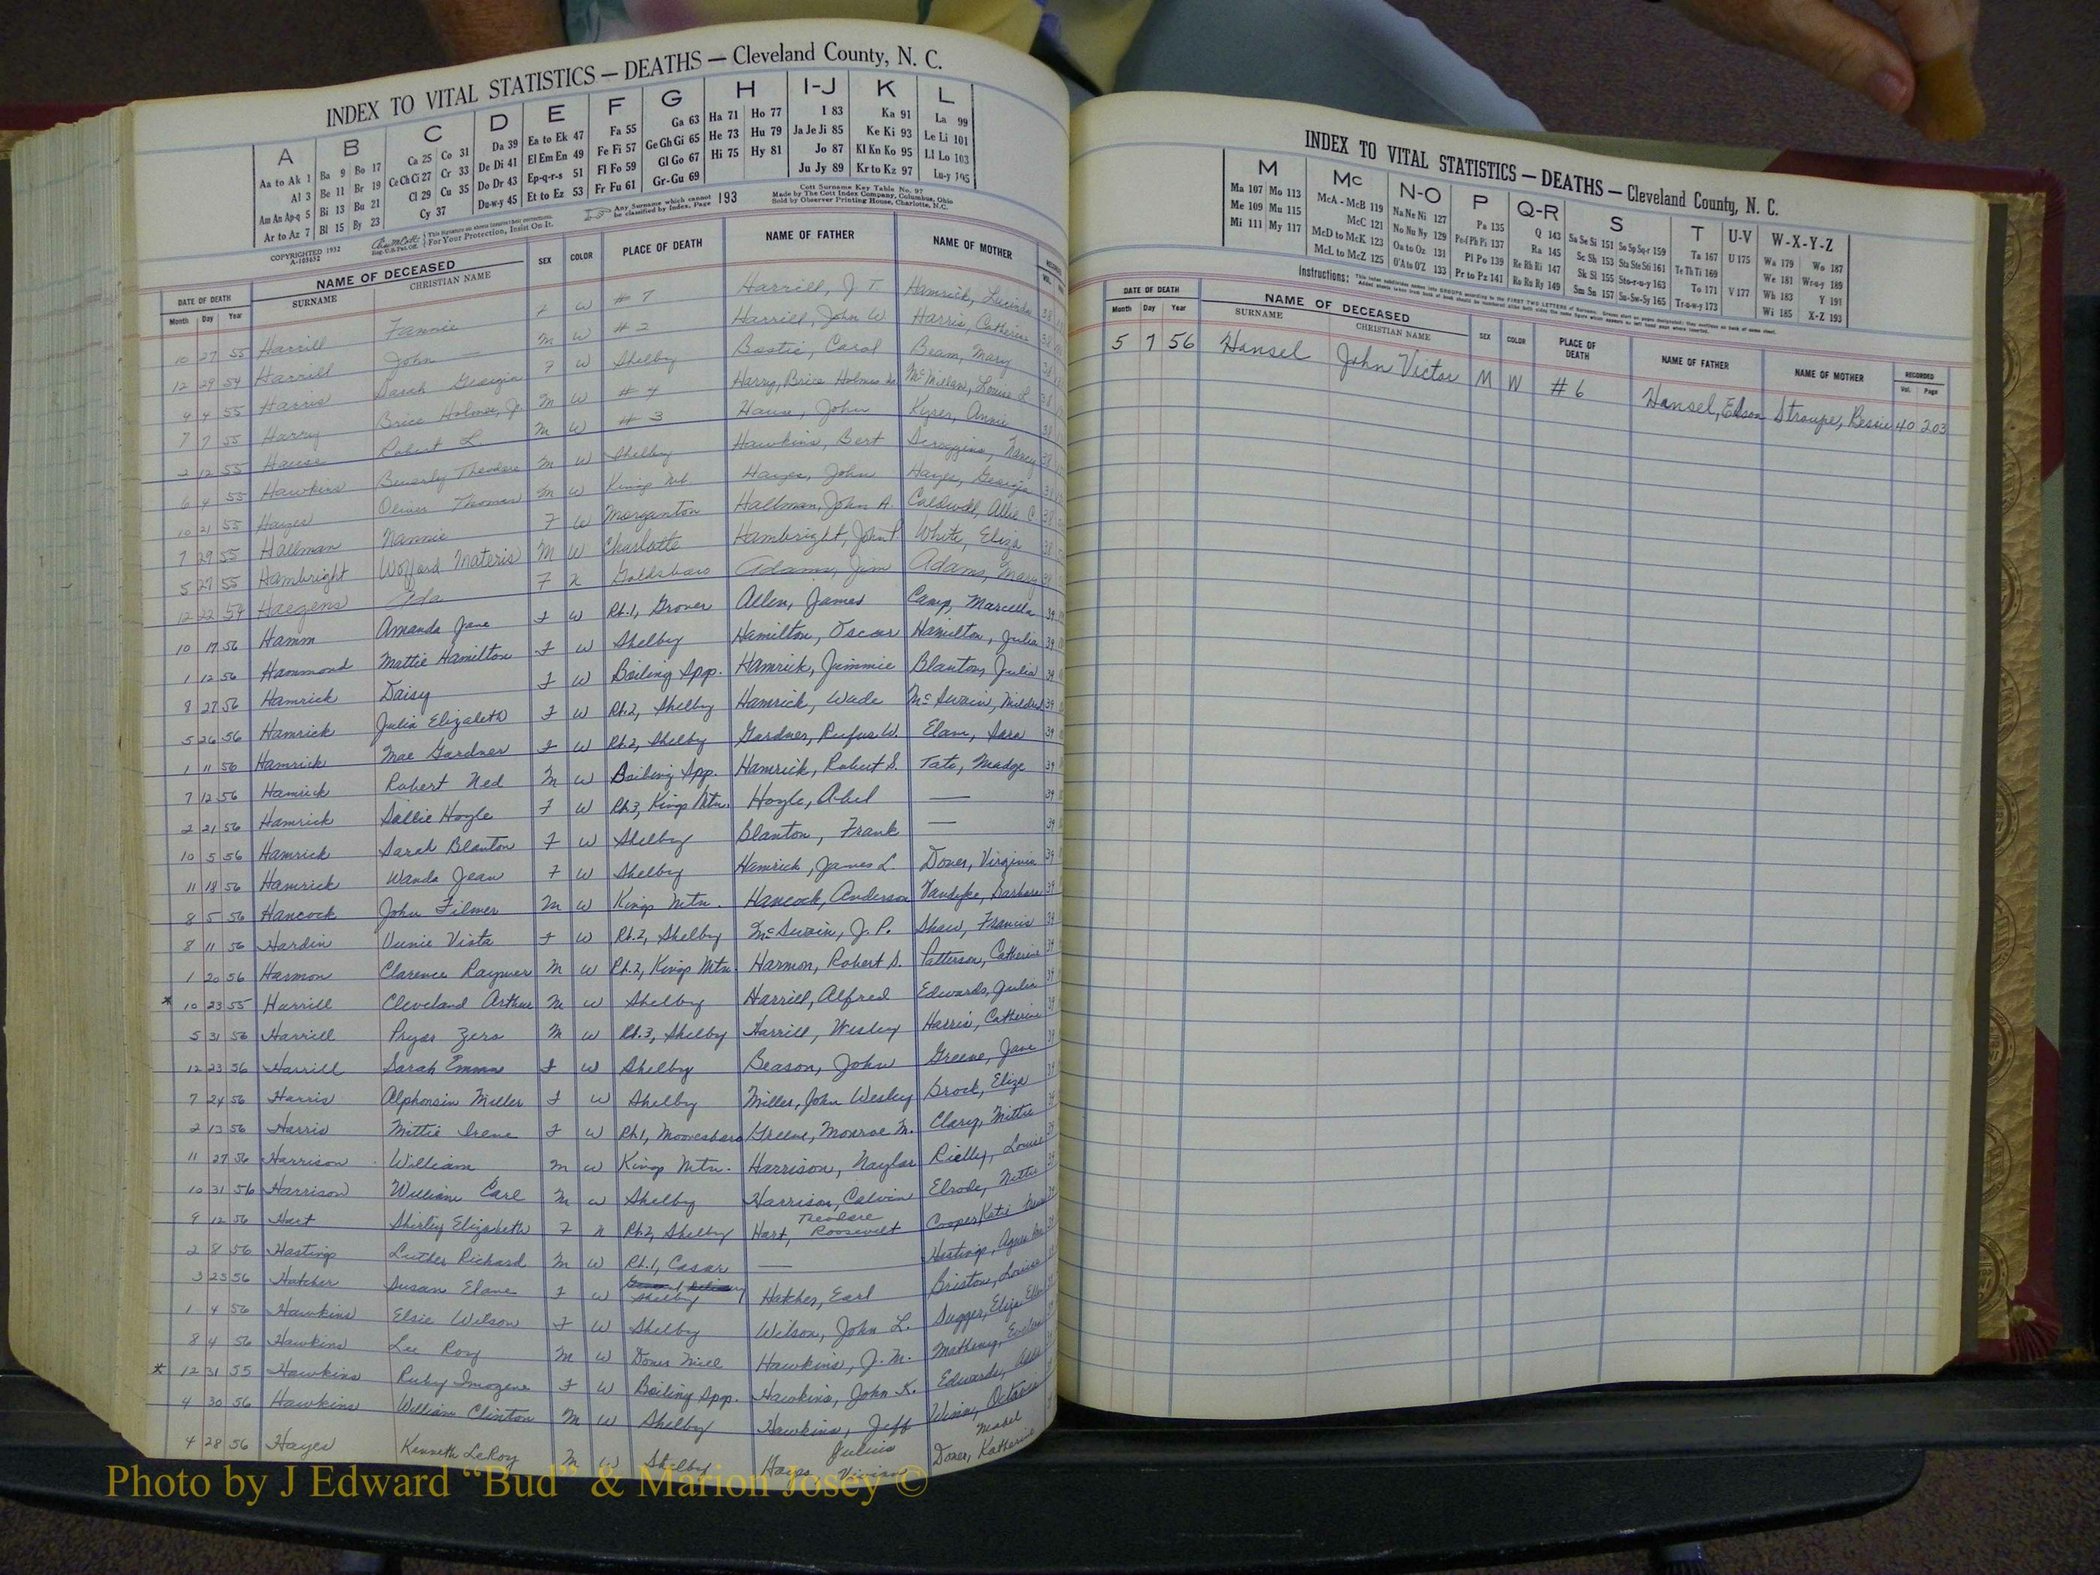 INDEX TO VITAL STATISTICS — DEATHS — Cleveland County, N. C.
A B C D E F G H I-J K L
Aa to Ak 1 Ba 9 Bo 17 Ca 25 Co 31 Da 39 Ea to Ek 47 Fa 55 Ga 63 Ha 71 Ho 77 I 83 Ka 91 La 99
Al 3 Be 11 Br 19 Ce Ch Ci 27 Cr 33 De Di 41 El Em En 49 Fe Fi 57 Ge Gh Gi 65 He 73 Hu 79 Ja Je Ji 85 Ke Ki 93 Le Li 101
Am An Ap-q 5 Bi 13 Bu 21 Cl 29 Cu 35 Do Dr 43 Ep-q-r-s 51 Fl Fo 59 Gl Go 67 Hi 75 Hy 81 Jo 87 Kl Kn Ko 95 Ll Lo 103
Ar to Az 7 Bl 15 By 23 Cy 37 Du-w-y 45 Et to Ez 53 Fr Fu 61 Gr-Gu 69 Ju Jy 89 Kr to Kz 97 Lu-y 105
COPYRIGHTED 1932
A-103652
For Your Protection, Insist On It.
Any Surname which cannot be classified by Index, Page 193
Cott Surname Key Table No. 97
Made by The Cott Index Company, Columbus, Ohio
Sold by Observer Printing House, Charlotte, N.C.
DATE OF DEATH NAME OF DECEASED SEX COLOR PLACE OF DEATH NAME OF FATHER NAME OF MOTHER
Month Day Year SURNAME CHRISTIAN NAME
10 27 55 Harrill Fannie F W # 7 Harrill, J T Hamrick, Lucinda 38
12 29 54 Harrill John M W # 2 Harrill, John W Harris, Catherine 38
4 4 55 Harris Sarah Georgia F W Shelby Bostic, Carol Beam, Mary 38
7 7 55 Harry Brice Holmes, Jr. M W # 4 Harry, Brice Holmes McMillan, Louise L 38
2 12 55 Hause Robert L. M W # 3 Hause, John Kyser, Annie 38
6 4 55 Hawkins Beverly Theodore M W Shelby Hawkins, Bert Scroggins, Nancy 38
10 21 55 Hayes Oliver Thomas M W Kings Mt Hayes, John Hayes, Georgia 38
7 29 55 Hallman Nannie F W Morganton Hallman, John A. Caldwell, Allie C 38
5 27 55 Hambright Wofford Materis M W Charlotte Hambright, John P. White, Eliza 38
12 22 54 Haegens Ada F Goldsboro Adams, Jim Adams, Mary 38
10 17 56 Hamm Amanda Jane F W Rt.1, Grover Allen, James Camp, Marcella 39
1 12 56 Hammond Mattie Hamilton F W Shelby Hamilton, Oscar Hamilton, Julia 39
8 27 56 Hamrick Daisy F W Boiling Spp. Hamrick, Jimmie Blanton, Julia 39
5 26 56 Hamrick Julia Elizabeth F W Rt.2, Shelby Hamrick, Wade McSwain, Mildred 39
1 11 56 Hamrick Mae Gardner F W Rt.2, Shelby Gardner, Rufus W. Elam, Sara 39
7 12 56 Hamrick Robert Ned M W Boiling Spp. Hamrick, Robert S. Tate, Madge 39
2 21 56 Hamrick Sallie Hoyle F W Rt.3, Kings Mtn. Hoyle, Abel — 39
10 5 56 Hamrick Sarah Blanton F W Shelby Blanton, Frank — 39
11 18 56 Hamrick Wanda Jean F W Shelby Hamrick, James L. Dover, Virginia 39
8 5 56 Hancock John Filmer M W Kings Mtn. Hancock, Anderson Vandyke, Barbara 39
8 11 56 Hardin Vunie Vista F W Rt.2, Shelby McSwain, J. P. Shaw, Francis 39
1 20 56 Harmon Clarence Raymer M W Rt.2, Kings Mtn. Harmon, Robert S. Patterson, Catherine 39
* 10 23 55 Harrill Cleveland Arthur M W Shelby Harrill, Alfred Edwards, Julia 39
5 31 56 Harrill Pryor Zero M W Rt.3, Shelby Harrill, Wesley Harris, Catherine 39
12 23 56 Harrill Sarah Emma F W Shelby Beason, John Greene, Jane 39
7 24 56 Harris Alphonsin Miller F W Shelby Miller, John Wesley Brock, Eliza 39
2 13 56 Harris Mittie Irene F W Rt1, Mooresboro Greene, Monroe M. Clary, Mittie 39
11 27 56 Harrison William M W Kings Mtn. Harrison, Naylor Rielly, Louise 39
10 31 56 Harrison William Earl M W Shelby Harrison, Calvin Elrode, Nettie 39
9 12 56 Hart Shirley Elizabeth F N Rt.2, Shelby Hart, Theodore Roosevelt Cooper, Katie
2 8 56 Hastings Luther Richard M W Rt.1, Casar — Hastings, Agnes
3 23 56 Hatcher Susan Elane F W Shelby Hatcher, Earl Briston, Louise
1 4 56 Hawkins Elsie Wilson F W Shelby Wilson, John L. Sugger, Eliza
8 4 56 Hawkins Lee Roy M W Dover Mill Hawkins, J. M. Matheny,
* 12 31 55 Hawkins Ruby Imogene F W Boiling Spp. Hawkins, John K. Edwards,
4 30 56 Hawkins William Clinton M W Shelby Hawkins, Jeff Octavia
4 28 56 Hayes Kenneth LeRoy M W Shelby Hayes Julius Vivian Dover, Mabel Katherine
INDEX TO VITAL STATISTICS — DEATHS — Cleveland County, N. C.
M Mc N-O P Q-R S T U-V W-X-Y-Z
Ma 107 Mo 113 McA - McB 119 Na Ne Ni 127 Pa 135 Q 143 Sa Se Si 151 So Sp Sq-r 159 Ta 167 U 175 Wa 179 Wo 187
Me 109 Mu 115 McC 121 No Nu Ny 129 Pe-f Ph Pi 137 Ra 145 Sc Sh 153 Sta Ste Sti 161 Te Th Ti 169 We 181 Wr-u-y 189
Mi 111 My 117 McD to McK 123 Oa to Oz 131 Pl Po 139 Re Rh Ri 147 Sk Sl 155 Sto-r-u-y 163 To 171 V 177 Wh 183 Y 191
McL to McZ 125 O'A to O'Z 133 Pr to Pz 141 Ro Ru Ry 149 Sm Sn 157 Su-Sw-Sy 165 Tr-u-w-y 173 Wi 185 X-Z 193
Instructions:
DATE OF DEATH NAME OF DECEASED SEX COLOR PLACE OF DEATH NAME OF FATHER NAME OF MOTHER RECORDED
Month Day Year SURNAME CHRISTIAN NAME Vol. Page
5 7 56 Hansel John Victor M W # 6 Hansel, Edson Stroupe, Bessie 40 203
Photo by J Edward “Bud” & Marion Josey ©